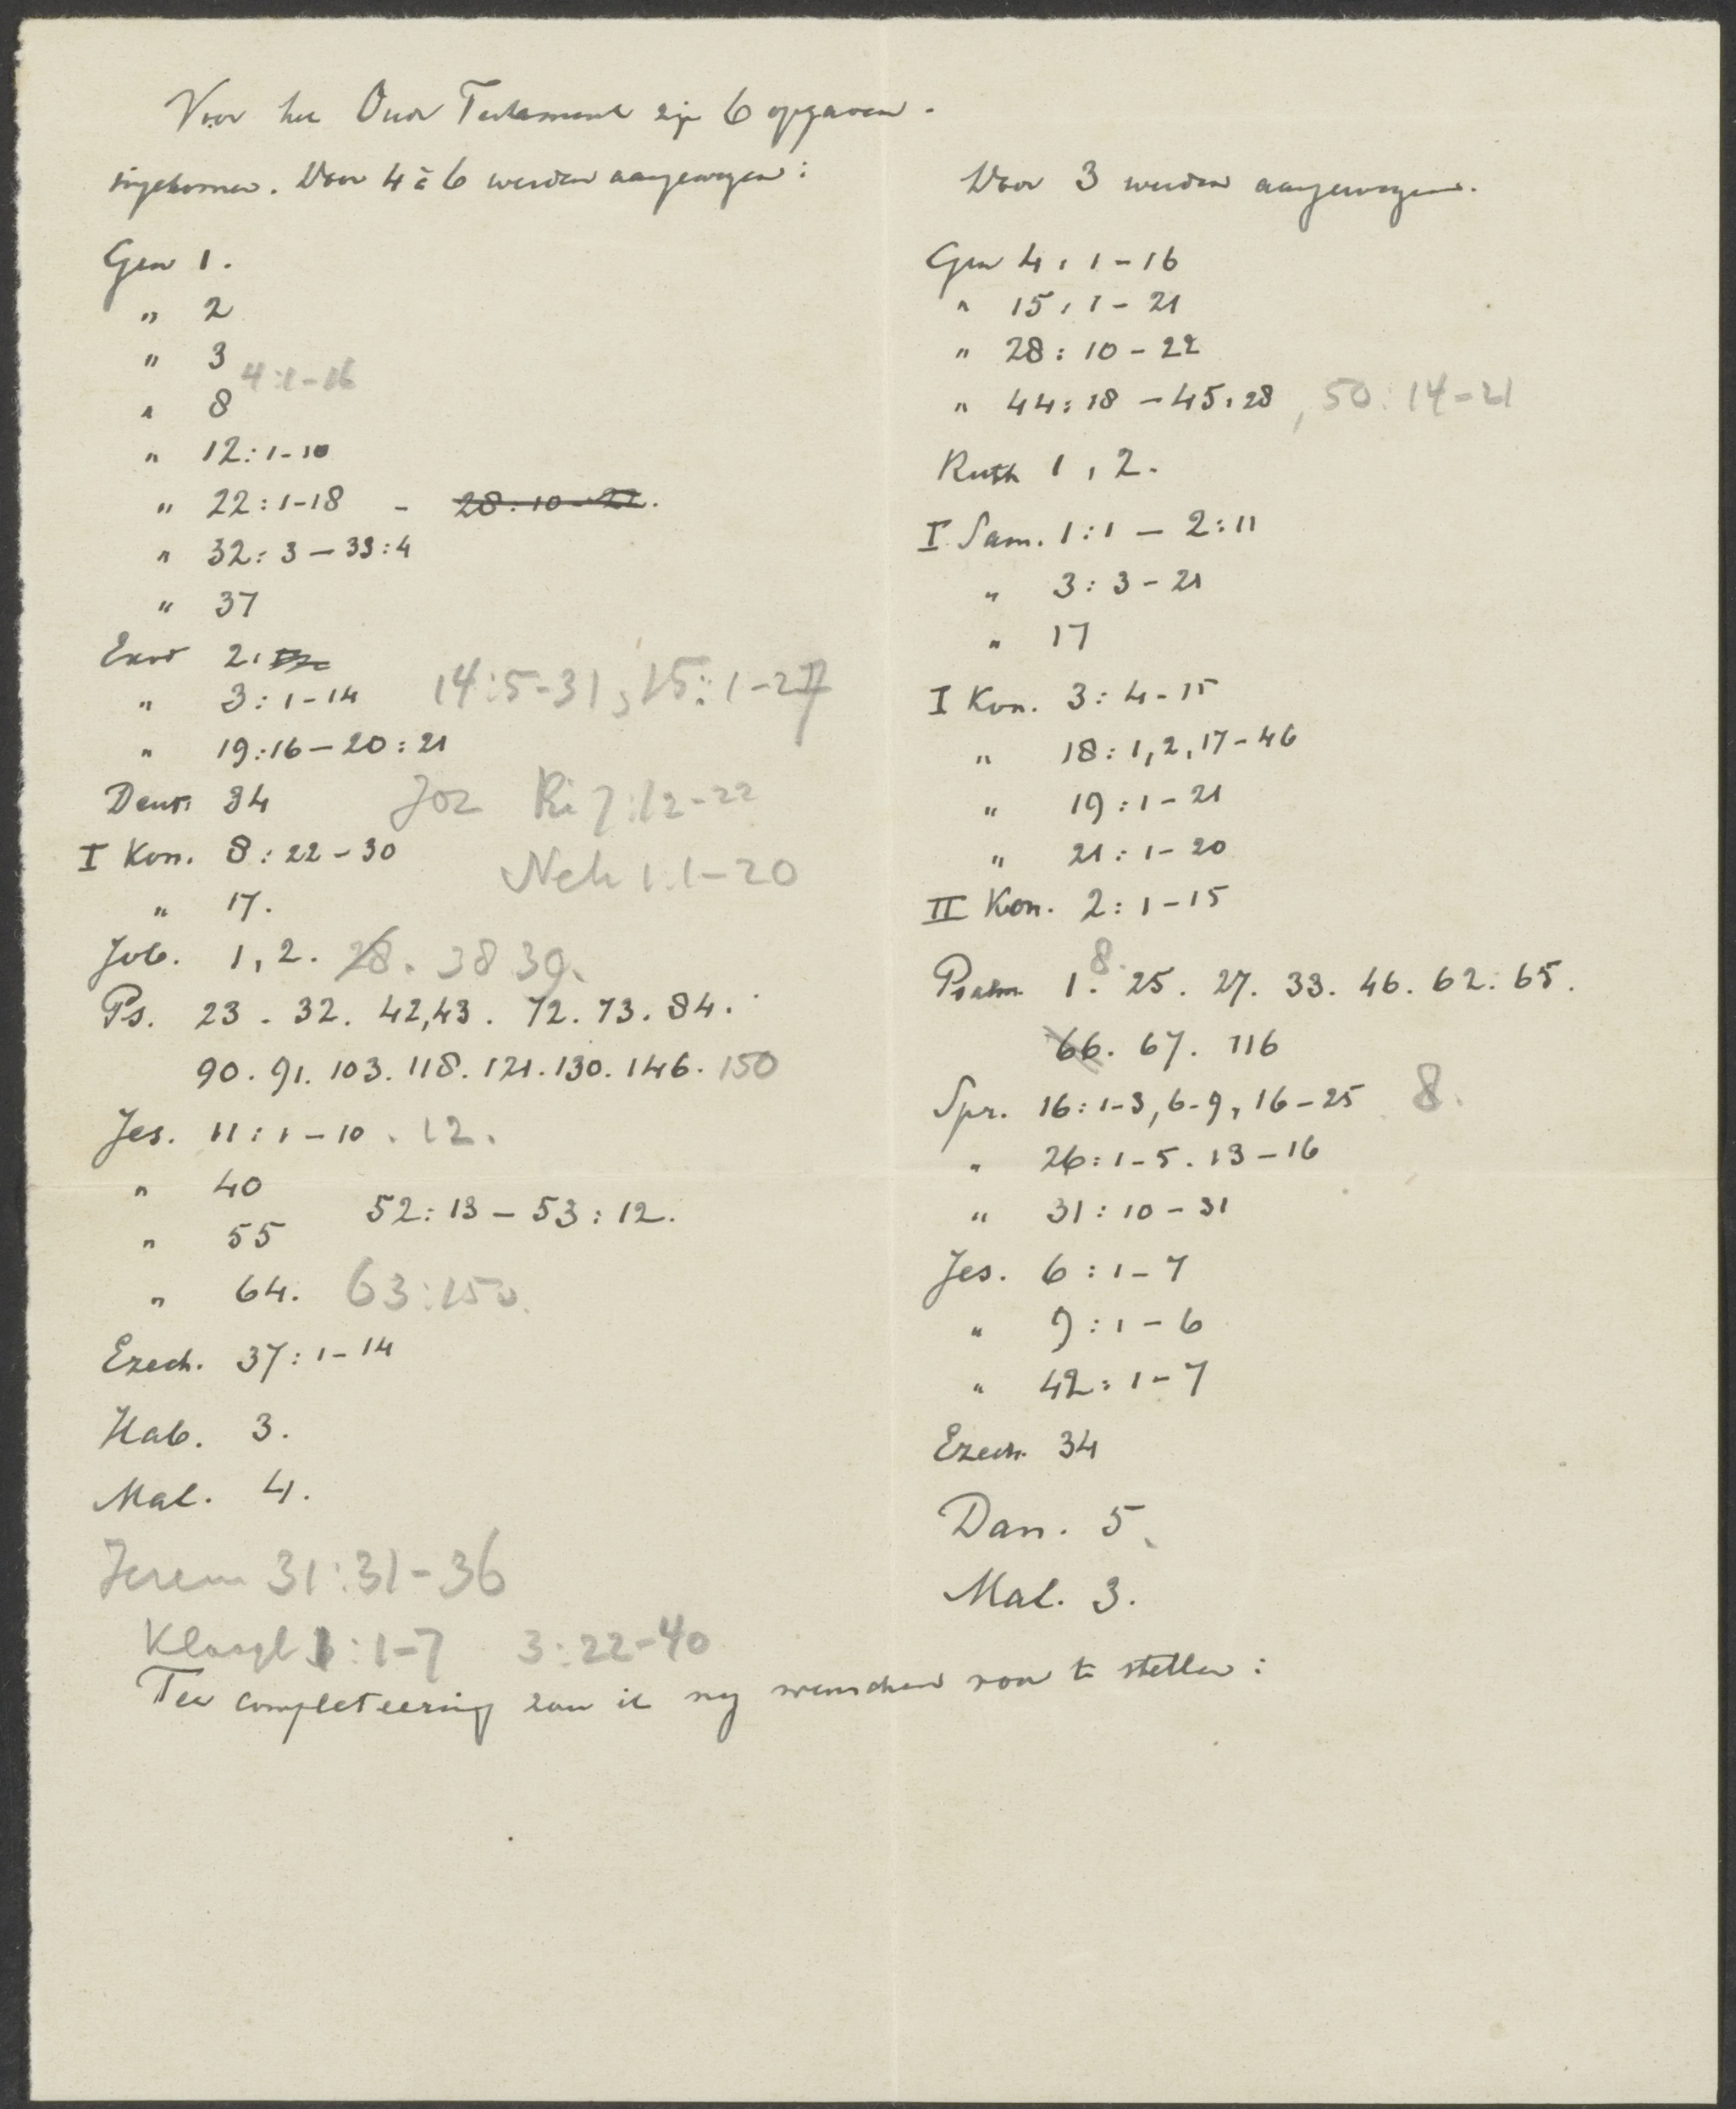 Voor het Oude Testament zijn 6 opgaven
ingekomen. Door 4 à 6 werden aangewezen:
Gen 1.
" 2
" 3
4:1-16
" 8
" 12:1-10
" 22:1-18 - 28:10-22.
" 32:3-33:4
" 37
Exod 2:
" 3:1-14 14:5-31, 15:1-27
" 19:16-20:21
Deut. 34 Joz Ri 7:12-22
I Kon. 8:22-30
Neh 1:1-20
" 17.
Job. 1, 2. 28. 38 39.
Ps. 23. 32. 42,43. 72. 73. 84.
90. 91. 103. 118. 121. 130. 146. 150
Jes. 11:1-10. 12.
" 40
52:13-53:12.
" 55
" 64. 63:15
Ezech. 37:1-14
Hab. 3.
Mal. 4.
Jerem 31:31-36
Klaagl 1:1-7 3:22-40
Door 3 werden aangewezen.
Gen 4:1-16
" 15:1-21
" 28:10-22
" 44:18-45:28, 50:14-21
Ruth 1, 2.
I Sam. 1:1-2:11
" 3:3-21
" 17
I Kon. 3:4-15
" 18:1,2,17-46
" 19:1-21
" 21:1-20
II Kon. 2:1-15
Psalm 1. 8. 25. 27. 33. 46. 62. 65.
66. 67. 116
Spr. 16:1-3, 6-9, 16-25 8.
" 26:1-5. 13-16
" 31:10-31
Jes. 6:1-7
" 9:1-6
" 42:1-7
Ezech. 34
Dan. 5.
Mal. 3.
Ter completeering zou ik nog wenschen voor te stellen: